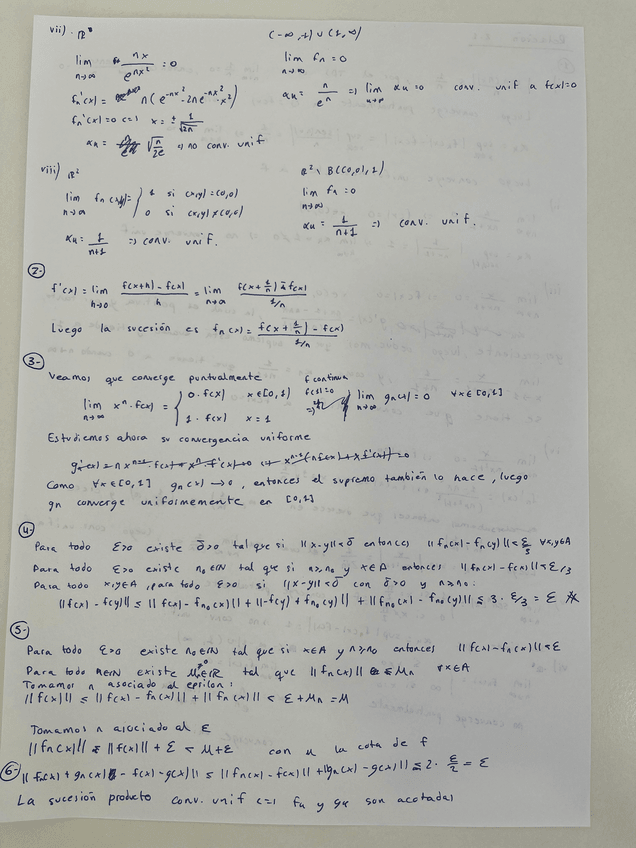 vii) ℝ (-∞,-1) ∪ (1,∞)
lim n→∞ nx/e^{nx²} = 0 lim n→∞ fn = 0
fn'(x) = n(e^{-nx²} - 2ne^{-nx²}·x²) αn = n/e^n ⇒ lim n→∞ αn = 0 conv. unif a f(x)=0
fn'(x)=0 <=> x = ± 1/√2n
αn = √(n/2e) ⇒ no conv. unif
viii) ℝ² ℝ² \ B((0,0),1)
lim n→∞ fn(x,y) = { 1 si (x,y)=(0,0) lim n→∞ fn = 0
0 si (x,y)≠(0,0)
αn = 1/(n+1) ⇒ conv. unif. αn = 1/(n+1) ⇒ conv. unif.
2-
f'(x) = lim h→0 (f(x+h) - f(x))/h = lim n→∞ (f(x+1/n) - f(x))/(1/n)
Luego la sucesión es fn(x) = (f(x+1/n) - f(x))/(1/n)
3-
Veamos que converge puntualmente
lim n→∞ x^n·f(x) = { 0·f(x) x∈[0,1) f continua f(1)=0 ⇒ lim n→∞ gn(x) = 0 ∀x∈[0,1]
1·f(x) x = 1
Estudiemos ahora su convergencia uniforme
Como ∀x∈[0,1] gn(x) → 0, entonces el supremo también lo hace, luego
gn converge uniformemente en [0,1]
4-
Para todo ε>0 existe δ>0 tal que si ||x-y||<δ entonces ||fn(x)-fn(y)|| < ε/3 ∀x,y∈A
Para todo ε>0 existe n₀∈ℕ tal que si n≥n₀ y x∈A entonces ||f(x)-fn(x)|| < ε/3
Para todo x,y∈A, para todo ε>0 si ||x-y||<δ con δ>0 y n≥n₀:
||f(x)-f(y)|| ≤ ||f(x)-fn₀(x)|| + ||-f(y)+fn₀(y)|| + ||fn₀(x)-fn₀(y)|| ≤ 3·ε/3 = ε
5-
Para todo ε>0 existe n₀∈ℕ tal que si x∈A y n≥n₀ entonces ||f(x)-fn(x)|| < ε
Para todo n∈ℕ existe Mn∈ℝ^{>0} tal que ||fn(x)|| ≤ Mn ∀x∈A
Tomamos n asociado al epsilon:
||f(x)|| ≤ ||f(x)-fn(x)|| + ||fn(x)|| < ε + Mn = M
Tomamos n asociado al ε
||fn(x)|| ≤ ||f(x)|| + ε < M+ε con M la cota de f
6- ||fn(x)+gn(x) - f(x)-g(x)|| ≤ ||fn(x)-f(x)|| + ||gn(x)-g(x)|| ≤ 2·ε/2 = ε
La sucesión producto conv. unif <=> fn y gn son acotadas